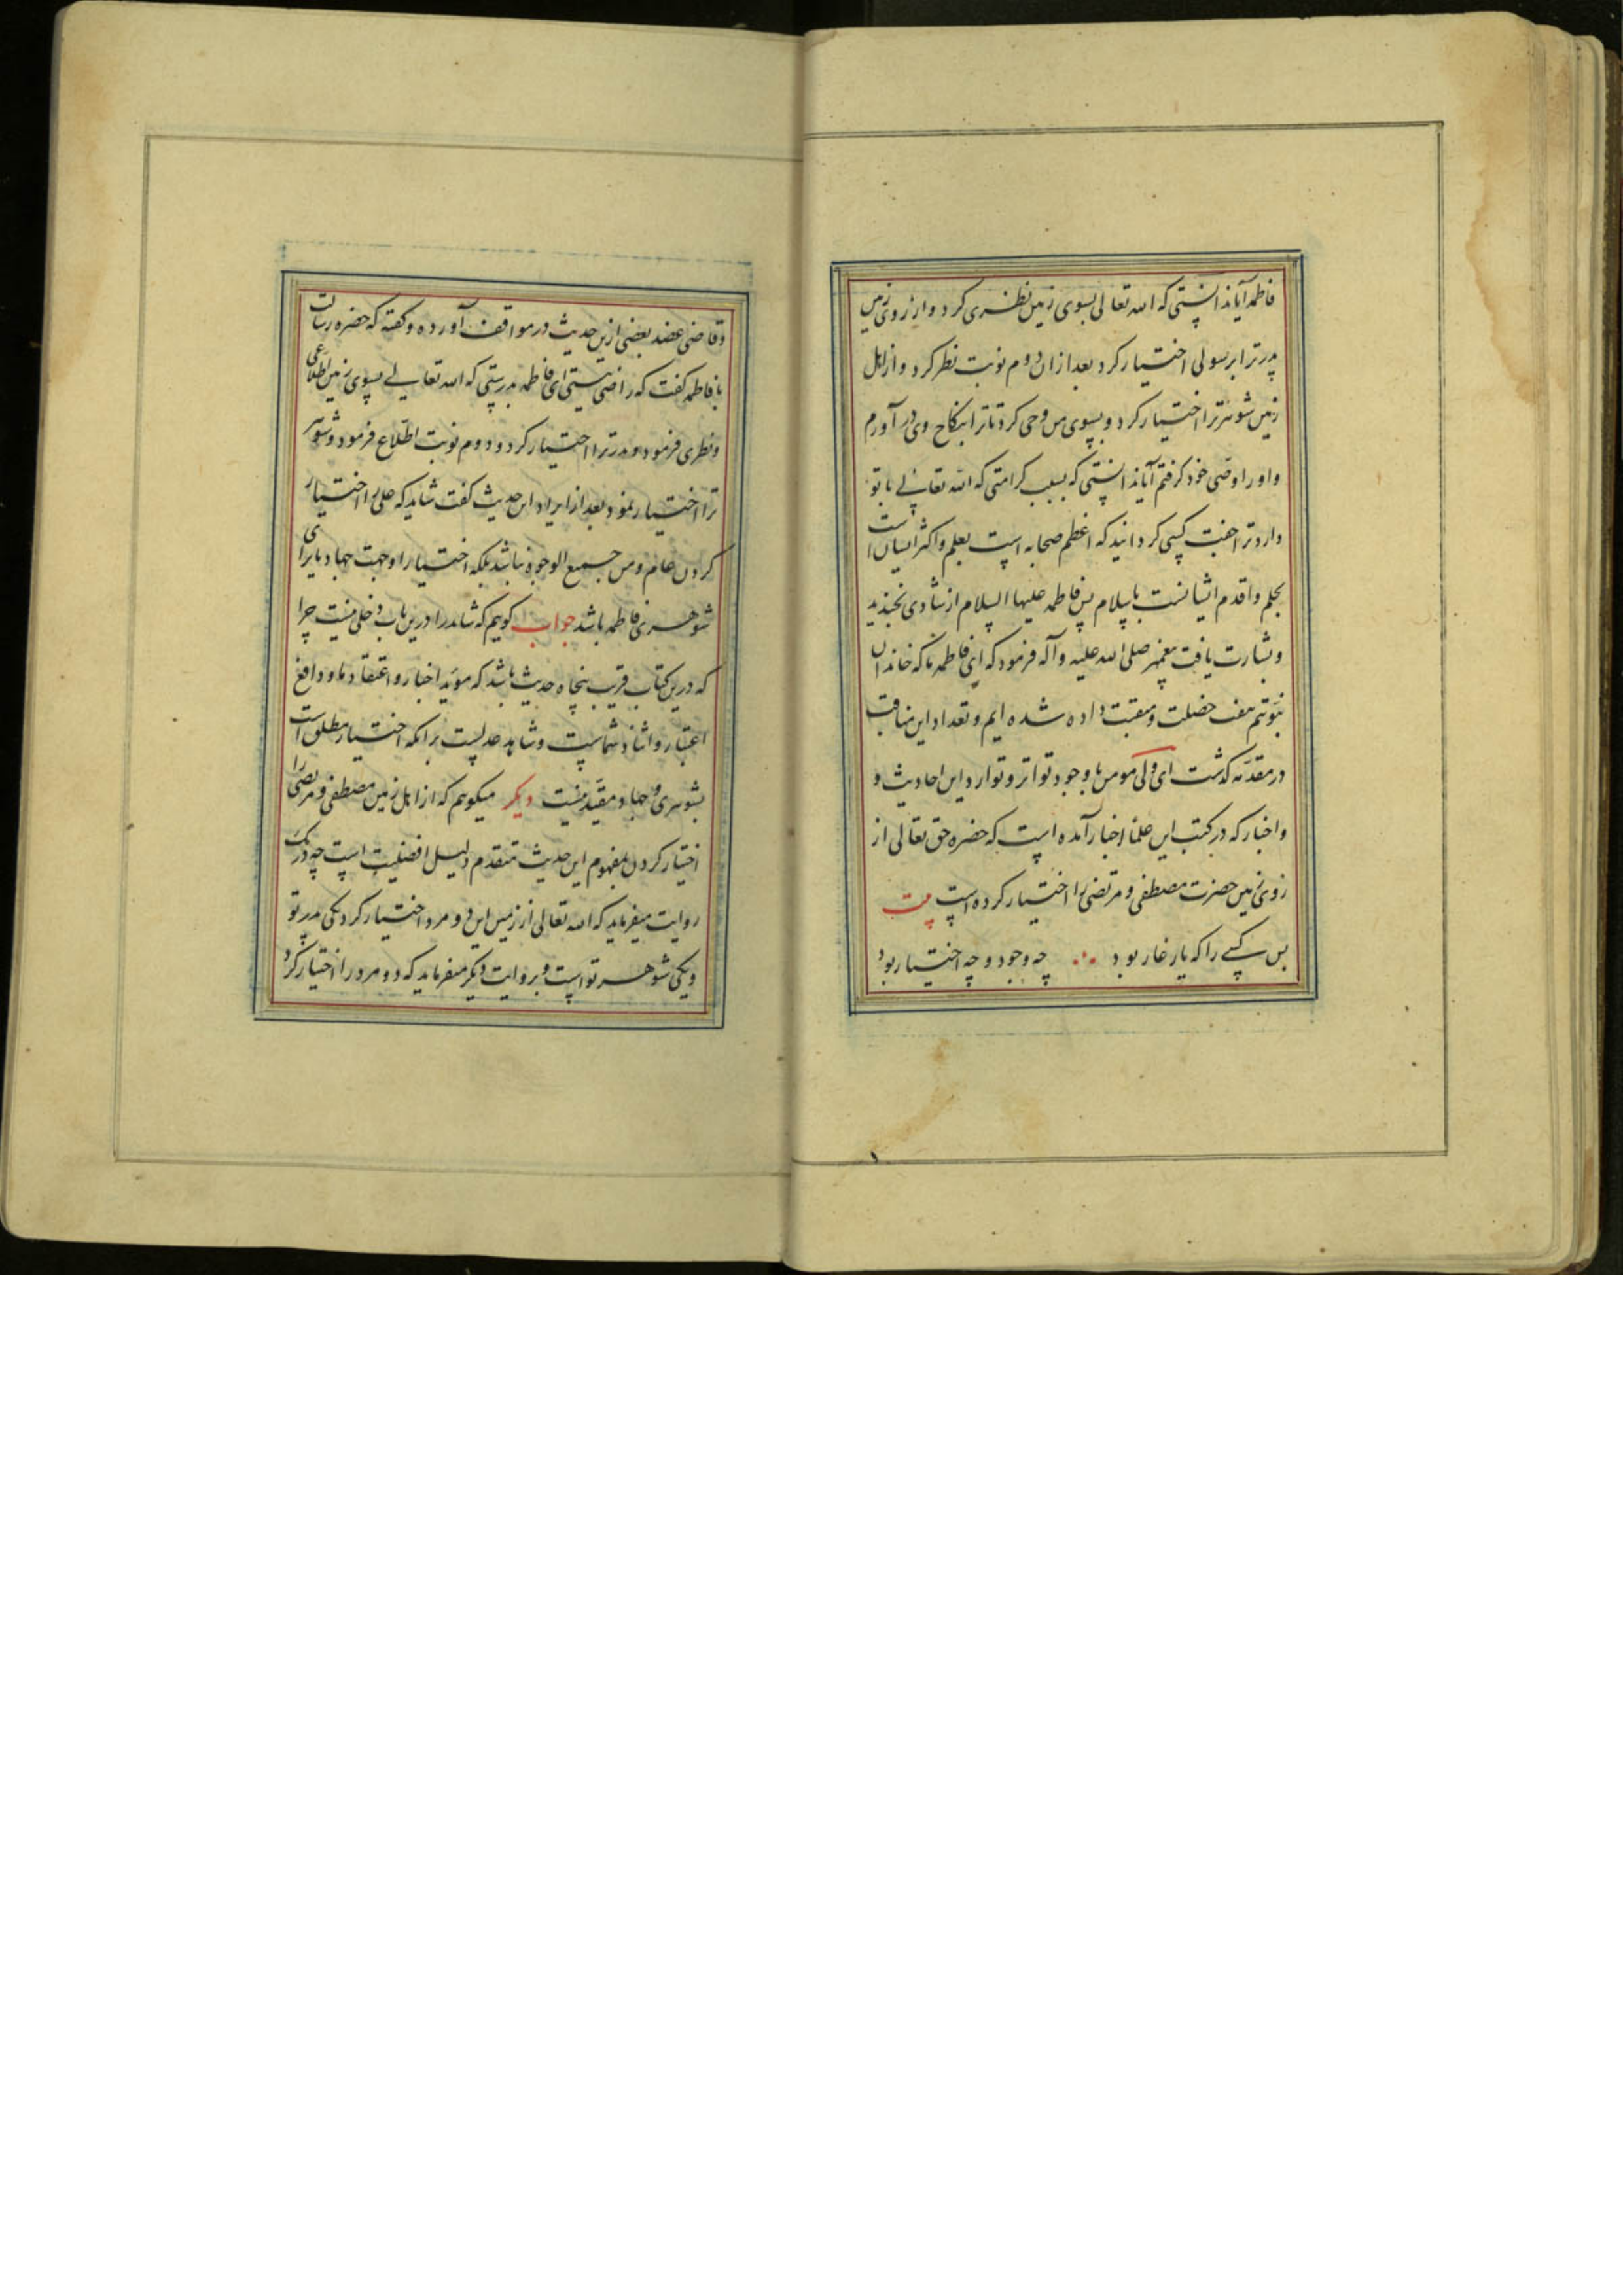 فاطمه آیا ندانستی که الله تعالی بسوی زمین نظری کرد و از روی زمین
پدر ترا برسولی اختیار کرد بعد ازان دوم نوبت نظر کرد و از اهل
زمین شوهر ترا اختیار کرد و بسوی من وحی کرد تا ترا بنکاح وی در آورم
و او را وصی خود کرفتم آیا ندانستی که بسبب کرامتی که الله تعالی با تو
دارد ترا جفت کسی کردانید که اعظم صحابه است بعلم و اکثر ایشان است
بحلم و اقدم ایشانست باسلام پس فاطمه علیها السلام از شادی بخندید
و بشارت یافت پیغمبر صلی الله علیه و آله فرمود که ای فاطمه ما که خاندان
نبوتیم هفت خصلت و منقبت داده شده ایم و تعداد این مناقب
در مقدمه کذشت ای ولی مومن با وجود تواتر و توارد این احادیث و
و اخبار که در کتب این علما اخبار آمده است که حضره حق تعالی از
روی زمین حضرت مصطفی و مرتضی را اختیار کرده است بیت
پس کسی را که یار غار بود چه وجود و چه اختیار بود
و قاضی عضد بعضی ازین حدیث در مواقف آورده و کفته که حضره رسالت
با فاطمه کفت که راضی نیستی ای فاطمه بدرستی که الله تعالی بسوی زمین اطلاعی
و نظری فرمود و پدر ترا اختیار کرد و دوم نوبت اطلاع فرمود و شوهر
ترا اختیار نمود بعد از ایراد این حدیث کفت شاید که علی را اختیار
کردن عام و من جمیع الوجوه نباشد بلکه اختیار او جهت جهاد یا برای
شوهری فاطمه باشد جواب کویم که شاید را درین باب دخلی نیست چرا
که درین کتاب قریب پنجاه حدیث باشد که موید اخبار و اعتقاد ما و دافع
اعتبار و اسناد شماست و شاهد عدلیست بر آنکه اختیار مطلق است
بشوهری و جهاد مقید نیست دیکر میکویم که از اهل زمین مصطفی و مرتضی را
اختیار کردن بمفهوم این حدیث متقدم دلیل افضلیت است چه در یک
روایت میفرماید که الله تعالی از زمین این دو مرد اختیار کرد یکی پدر تو
و یکی شوهر تو است و بروایت دیکر میفرماید که دو مرد را اختیار کرد